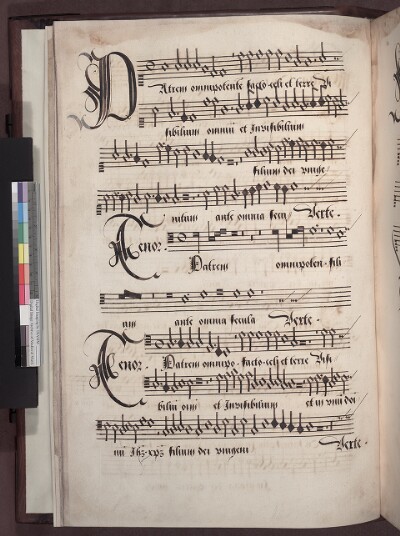 Patrem omnipotente facto celi et terre Vi
sibilium omniu et Invisibilium
filium dei unige
nitum ante omnia secu Verte.
Tenor. Patrem omnipoten. fili
um ante omnia secula Verte.
Tenor. Patrem omnipo. facto. celi et terre Visi
biliu om et Invisibilium et in unu dni
nu Ihu xpu filium dei unigeni Verte.